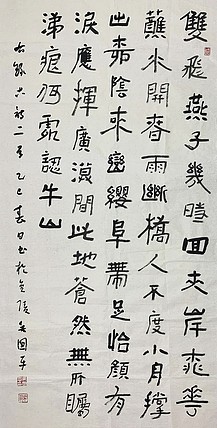 雙飛燕子幾時回夾岸桃花
蘸水開春雨斷橋人不度小舟撐
出柳陰來巒纓阜帶足怡顏有
淚應揮廣漠間此地蒼然無所矚
涕痕何處認牛山
二首乙巳春日書於金陵國平